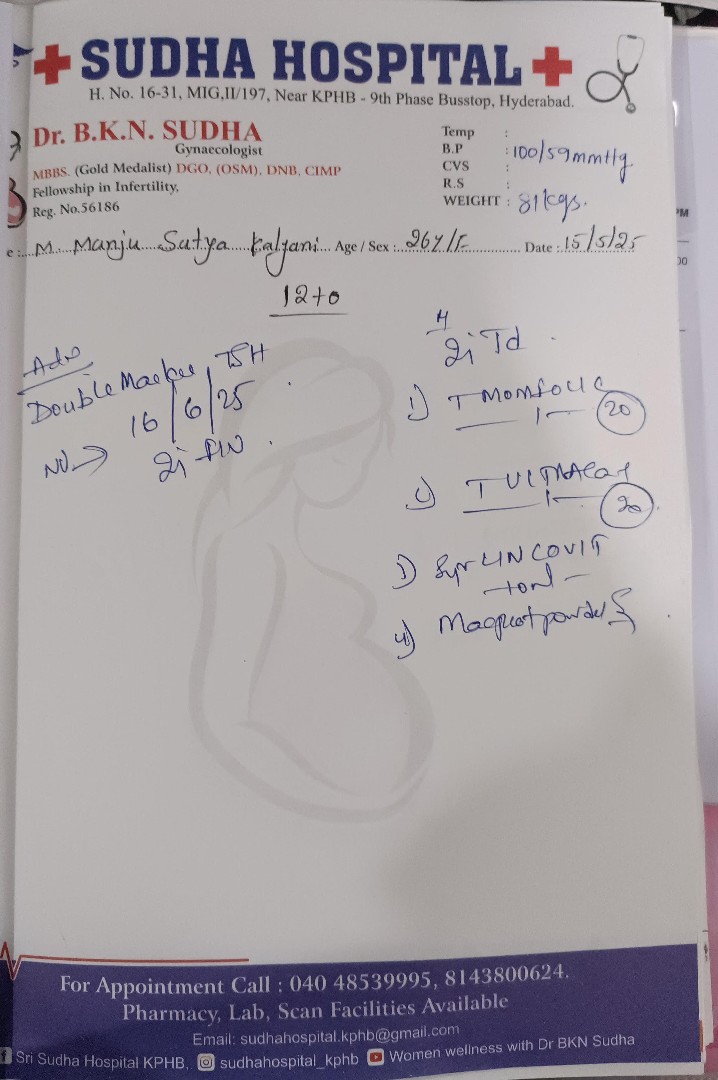 SUDHA HOSPITAL
H. No. 16-31, MIG,II/197, Near KPHB - 9th Phase Busstop, Hyderabad.
Dr. B.K.N. SUDHA
Gynaecologist
MBBS. (Gold Medalist) DGO, (OSM), DNB, CIMP
Fellowship in Infertility,
Reg. No.56186
Temp :
B.P : 100/59mmHg
CVS :
R.S :
WEIGHT : 81kgs.
e : M. Manju Satya Kalyani Age / Sex : 26Y/F Date : 15/5/25
12+0
Adv
Double Marker, TSH
16/6/25
Td
1) T
1 20
T
1
3) Syr
4) powder
For Appointment Call : 040 48539995, 8143800624.
Pharmacy, Lab, Scan Facilities Available
Email: sudhahospital.kphb@gmail.com
Sri Sudha Hospital KPHB, sudhahospital_kphb Women wellness with Dr BKN Sudha
PM
00